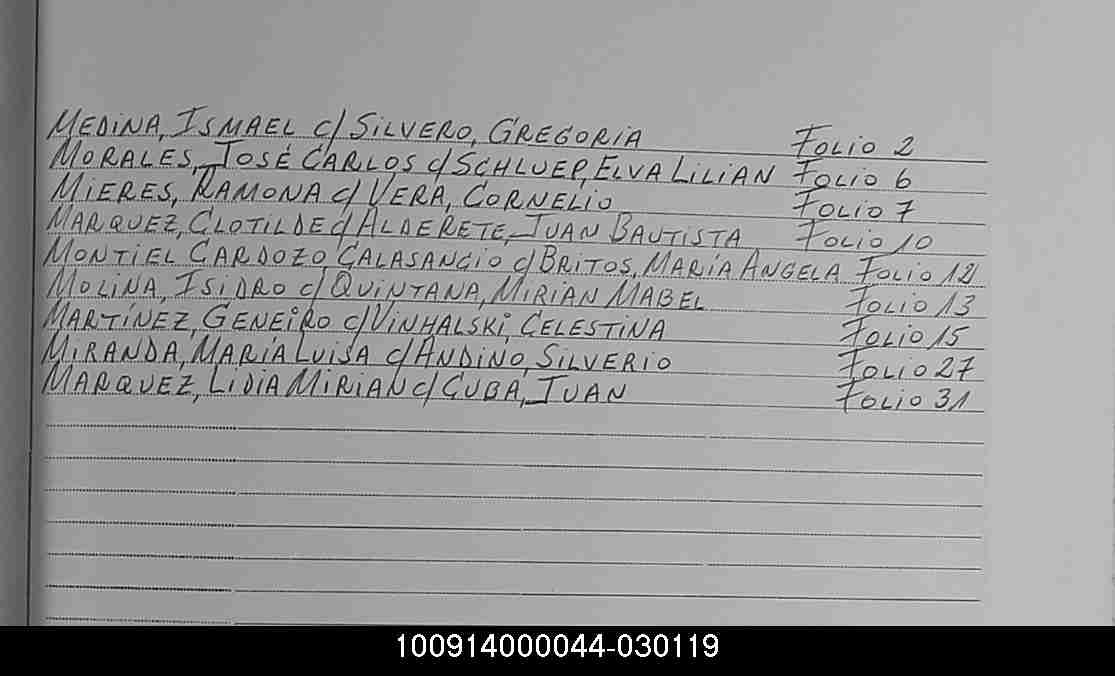 MEDINA, ISMAEL c/ SILVERO, GREGORIA Folio 2
MORALES, JOSÉ CARLOS c/ SCHLUEP, ELVA LILIAN Folio 6
MIERES, RAMONA c/ VERA, CORNELIO Folio 7
MARQUEZ, CLOTILDE c/ ALDERETE, JUAN BAUTISTA Folio 10
MONTIEL CARDOZO CALASANCIO c/ BRITOS, MARÍA ANGELA Folio 12
MOLINA, ISIDRO c/ QUINTANA, MIRIAN MABEL Folio 13
MARTÍNEZ, GENEIRO c/ VINHALSKI, CELESTINA Folio 15
MIRANDA, MARÍA LUISA c/ ANDINO, SILVERIO Folio 27
MARQUEZ, LIDIA MIRIAN c/ CUBA, JUAN Folio 31
100914000044-030119